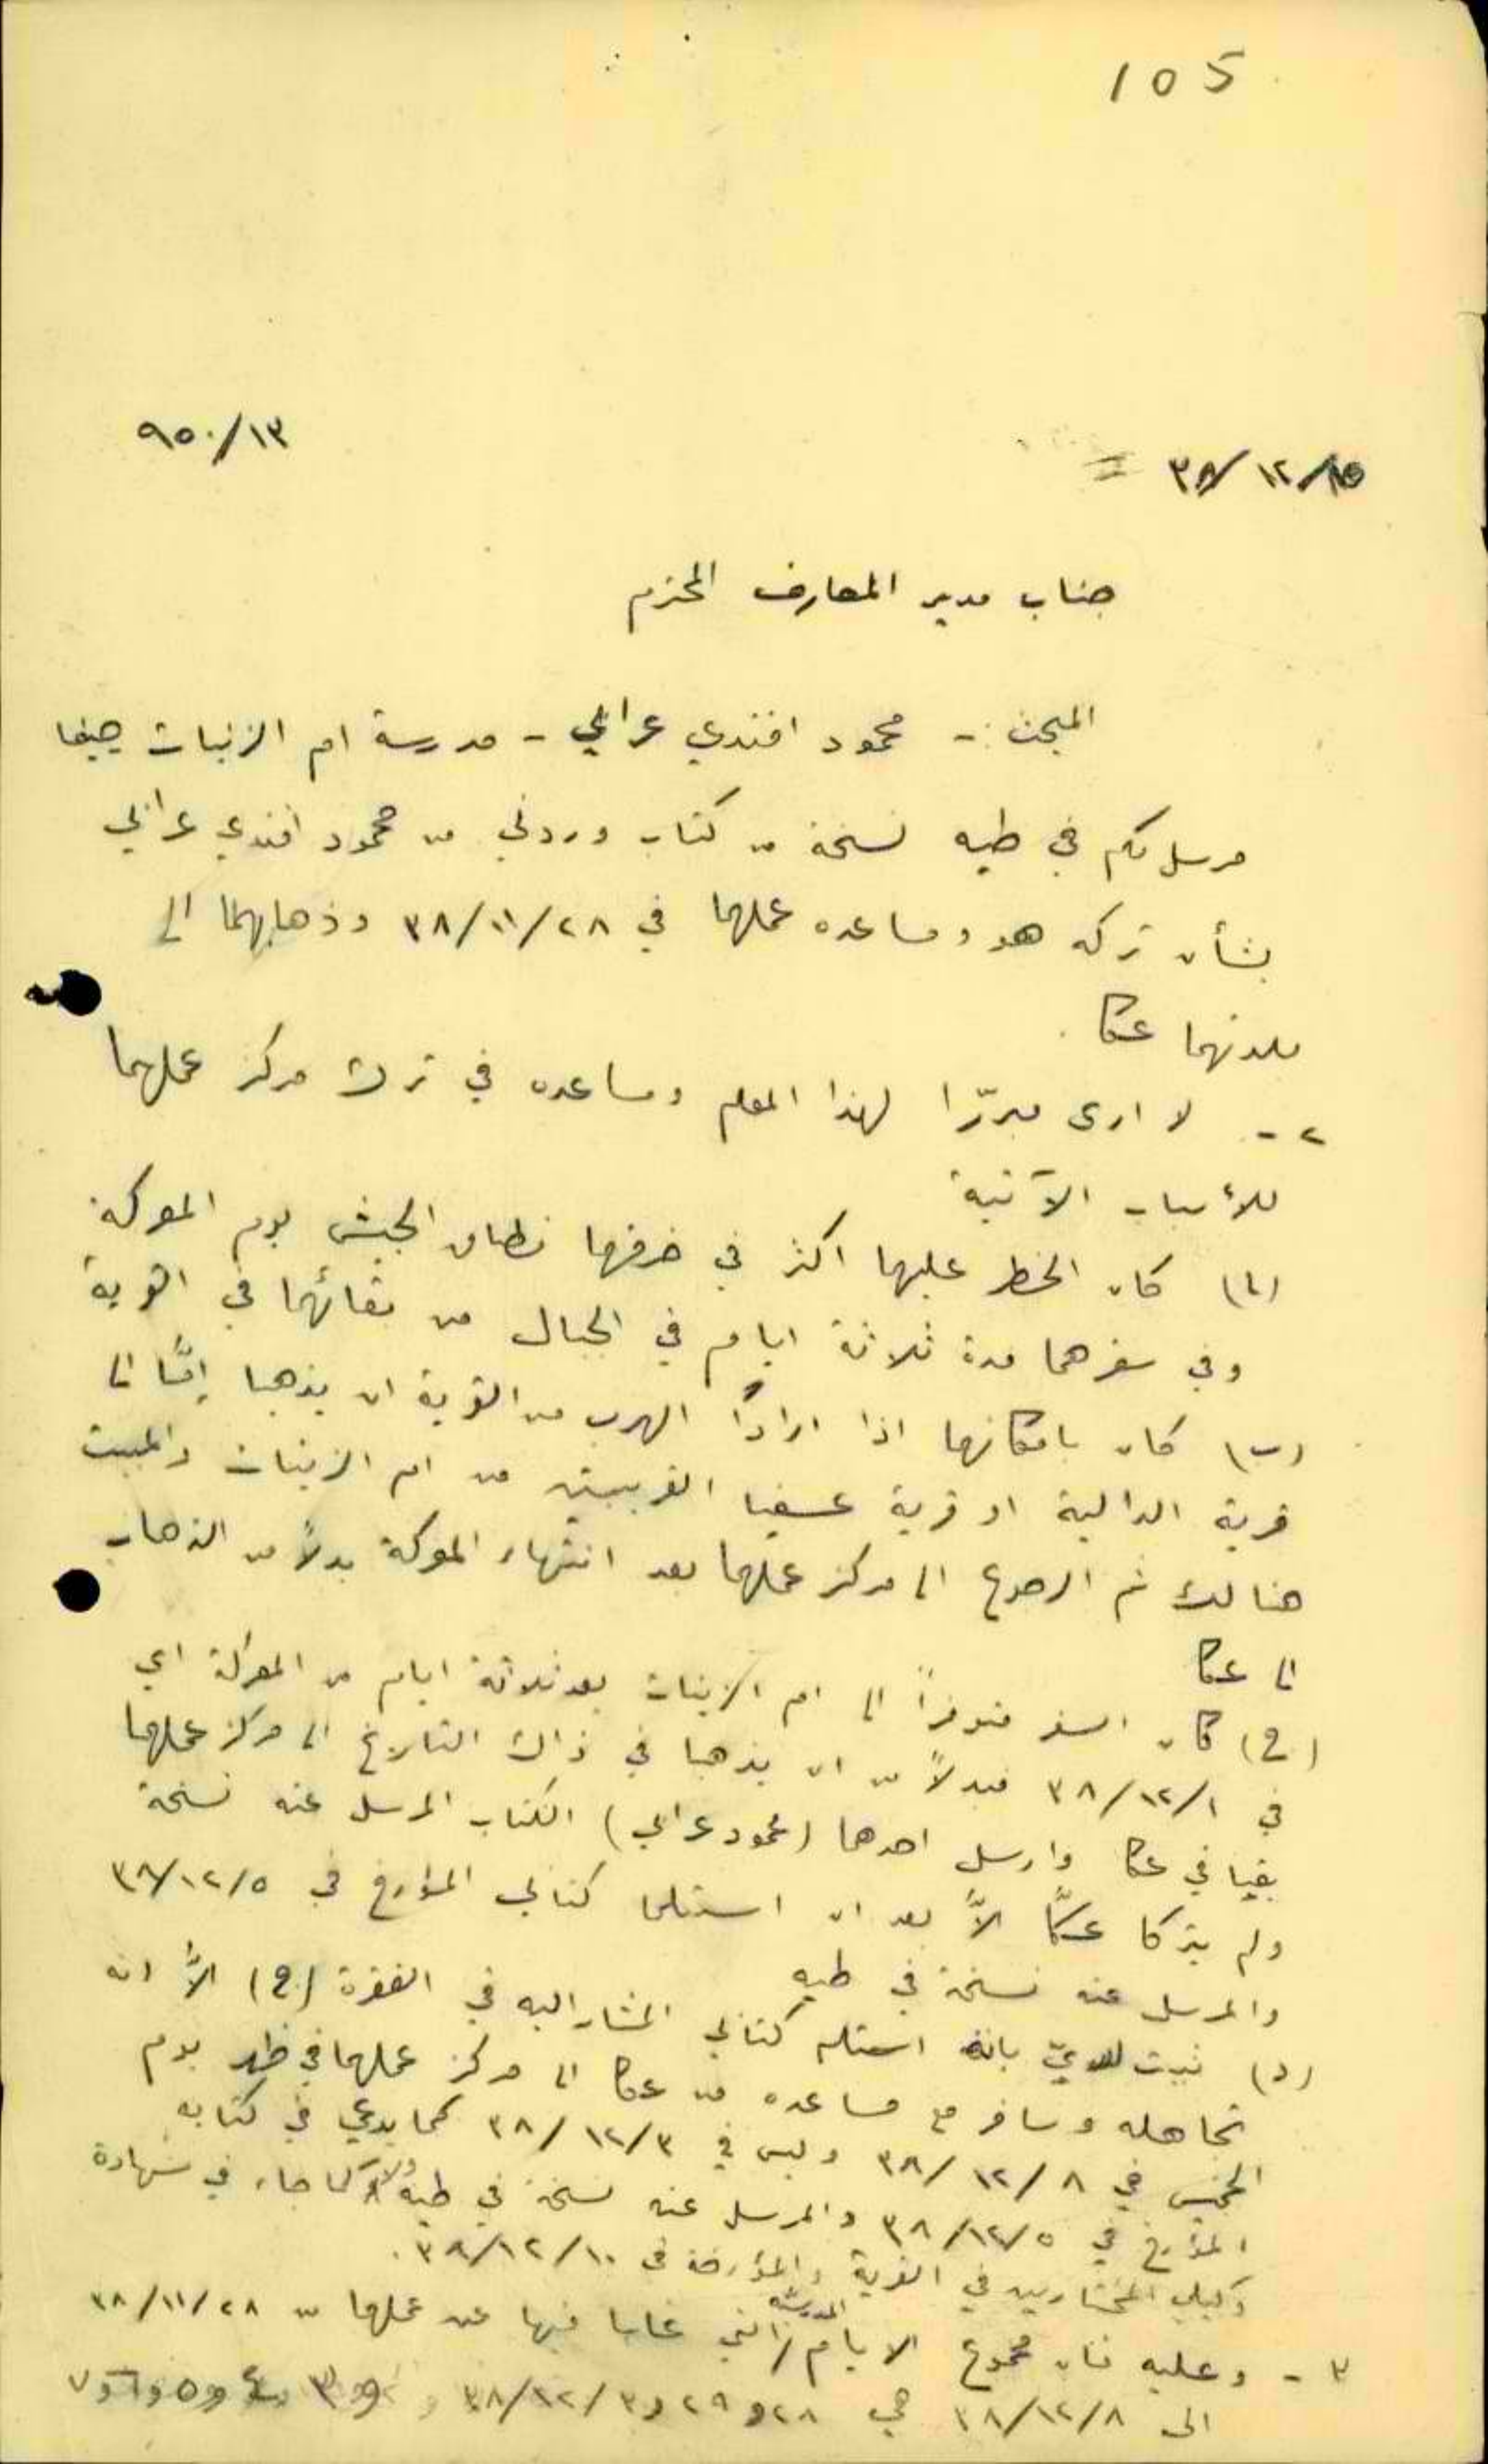 105
٩٥٠/١٣
٣٨/١٢/١٥
جناب مدير المعارف المحترم
المبحث :- محمود افندي عرابي - مدرسة ام الزينات حيفا
مرسل لكم في طيه نسخة من كتاب وردني من محمود افندي عرابي
بشأن تركه هو ومساعده عملهما في ٣٨/١١/٢٨ وذهابهما الى
بلدتهما عكا .
٢ - لا ارى مبررّا لهذا المعلم ومساعده في ترك مركز عملهما
للأسباب الآتية
(أ) كان الخطر عليهما اكثر في خرقهما نطاق الجيش يوم المعركة
وفي سفرهما مدة ثلاثة ايام في الجبال من بقائهما في القرية
(ب) كان بامكانهما اذا ارادا الهرب من القرية ان يذهبا إمّا الى
قرية الدالية او قرية عسفيا القريبتين من ام الزينات والمبيت
هنالك ثم الرجوع الى مركز عملهما بعد انتهاء المعركة بدلاً من الذهاب
الى عكا
(ج) كان السفر متوفراً الى ام الزينات بعد ثلاثة ايام من المعركة اي
في ٣٨/١٢/١ فبدلاً من ان يذهبا في ذاك التاريخ الى مركز عملهما
بقيا في عكا وارسل احدهما (محمود عرابي) الكتاب المرسل عنه نسخة
ولم يتركا عكّا الاّ بعد ان استلما كتابي المؤرخ في ٣٨/١٢/٥
والمرسل عنه نسخة في طيه
(د) ثبت لديّ بانه استلم كتابي المشار اليه في الفقرة (ج) الاّ انه
تجاهله وسافر مع مساعده من عكا الى مركز عملهما في ظهر يوم
الخميس في ٣٨/١٢/٨ وليس في ٣٨/١٢/٣ كما يدعي في كتابه
المؤرخ في ٣٨/١٢/٥ والمرسل عنه نسخة في طيه ولا كما جاء في شهادة
وكيلي المختارين في القرية والمؤرخة في ٣٨/١٢/١٠ .
٣ - وعليه فان مجموع الايام المدرسية التي غابا فيها عن عملهما من ٣٨/١١/٢٨
الى ٣٨/١٢/٨ هي ٢٨ و ٢٩ و